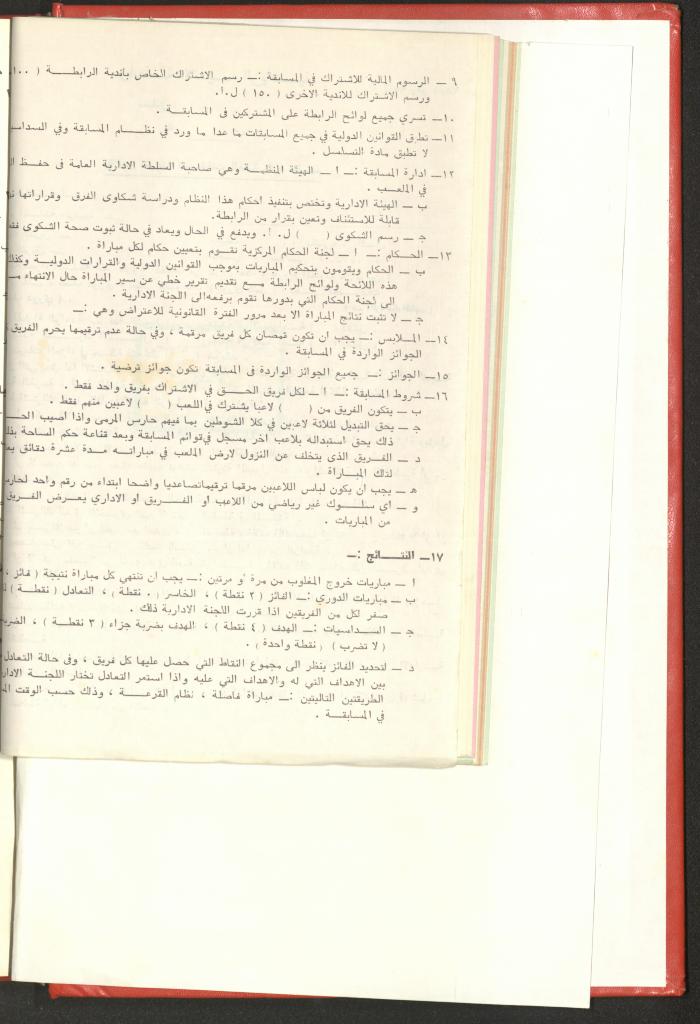 ٩ — الرسوم المالية للاشتراك في المسابقة :— رسم الاشتراك الخاص باندية الرابطـــة ( ١٠٠
ورسم الاشتراك للاندية الاخرى ( ١٥٠ ) ل.ا.
١٠— تسري جميع لوائح الرابطة على المشتركين فى المسابقـــة .
١١— تطبق القوانين الدولية في جميع المسابقات ما عدا ما ورد في نظـــام المسابقة وفي
لا تطبق مادة التسلسل .
١٢— ادارة المسابقة :— ا — الهيئة المنظمـــة وهي صاحبة السلطة الادارية العامة فى حفـــظ
في الملعـــب .
ب — الهيئة الادارية وتختص بتنفيذ احكام هذا النظام ودراسة شكاوى الفرق وقراراتها
قابلة للاستئناف وتعين بقرار من الرابطة.
جـ — رسم الشكوى ( ) ل. ا. ويدفع في الحال ويعاد في حالة ثبوت صحة الشكوى
١٣— الحـــكام :— ا — لجنة الحكام المركزية تقـــوم بتعيين حكام لكل مباراة .
ب — الحكام ويقومون بتحكيم المباريات بموجب القوانين الدولية والقرارات الدوليـــة
هذه اللائحة ولوائح الرابطة مـــع تقديم تقرير خطي عن سير المباراة حال الانتهاء
الى لجنة الحكام التي بدورها تقوم برفعه الى اللجنة الادارية .
جـ — لا تثبت نتائج المباراة الا بعد مرور الفترة القانونية للاعتراض وهي :—
١٤— المـــلابس :— يجب ان تكون قمصان كل فريق مرقمة ، وفي حالة عدم ترقيمها يحرم الفريق
الجوائز الواردة في المسابقة .
١٥— الجوائز :— جميع الجوائز الواردة فى المسابقة تكون جوائز ترضية .
١٦— شروط المسابقة :— ا — لكل فريق الحـــق في الاشتراك بفريق واحد فقط .
ب — يتكون الفريق من ( ) لاعبا يشترك في اللعب ( ) لاعبين منهم فقط .
جـ — يحق التبديل لثلاثة لاعبين في كلا الشوطين بما فيهم حارس المرمى واذا اصيب
ذلك يحق استبداله بلاعب اخر مسجل في قوائم المسابقة وبعد قناعة حكم الساحة
د — الفـــريق الذى يتخلف عن النزول لارض الملعب في مباراتـــه مـــدة عشرة دقائق
لتلك المبـــاراة .
هـ — يجب ان يكون لباس اللاعبين مرقما ترقيما تصاعديا واضحا ابتداء من رقم واحد
و — اي سلـــوك غير رياضي من اللاعب او الفـــريق او الاداري يعـــرض الفريق
من المباريات .
١٧— النتـــائج :—
ا — مباريات خروج المغلوب من مرة او مرتين :— يجب ان تنتهي كل مباراة نتيجة ( فائز ،
ب — مباريات الدوري :— الفائز ( ٢ نقطة ) ، الخاسر ( ٠ نقطة ) ، التعادل ( نقطة )
صفر لكل من الفريقين اذا قررت اللجنة الادارية ذلك .
جـ — الســـداسيات :— الهدف ( ٤ نقطة ) ، الهدف بضربة جزاء ( ٣ نقطة ) ،
( لا تضرب ) ( نقطة واحدة ) .
د — لتحديد الفائز ينظر الى مجموع النقاط التي حصل عليها كل فريق ، وفى حالة التعادل
بين الاهداف التي له والاهداف التي عليه واذا استمر التعادل تختار اللجنـــة
الطريقتين التاليتين :— مباراة فاصلة ، نظام القرعـــة ، وذلك حسب الوقت
في المسابقـــة .